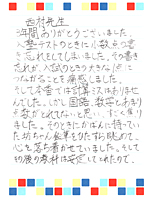 西村先生
1年間ありがとうございました。
入塾テストのときに小数点つけ
忘れをしてしまいました。その書き
忘れが、入試のときも大きなバツに
つながることを痛感しました。
そして本番では計算ミスはありませ
んでした。しかし国語、数学とわまり
点数がとれてないと思い、すごく焦り
ました。そのときにかばんに持ってい
た坊ちゃん鉛筆をひたすら眺めて
心を落ち着かせていました。そして
切り残り教材は安定してとれたので、